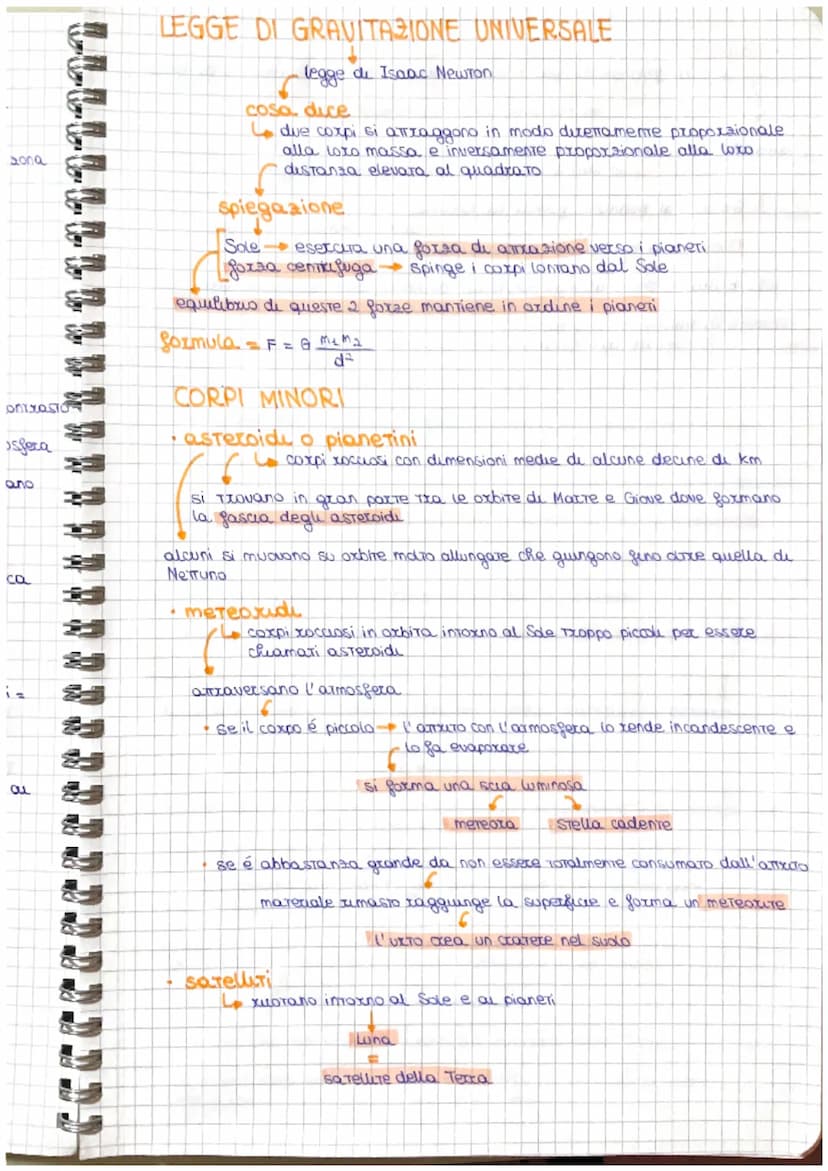 zona
ontrasto
osfera
ano
ca
i =
ai
LEGGE DI GRAVITAZIONE UNIVERSALE
legge di Isaac Newton
cosa dice
due corpi si attraggono in modo direttamente proporzionale
alla loro massa e inversamente proporzionale alla loro
distanza elevata al quadrato
spiegazione
Sole → esercita una forza di attrazione verso i pianeti
forza centrifuga → spinge i corpi lontano dal Sole
equilibrio di queste 2 forze mantiene in ordine i pianeti
formula = F = G m₁m₂
d²
CORPI MINORI
• asteroidi o pianetini
↳ corpi rocciosi con dimensioni medie di alcune decine di km
si trovano in gran parte tra le orbite di Marte e Giove dove formano
la fascia degli asteroidi
alcuni si muovono su orbite molto allungate che giungono fino oltre quella di
Nettuno
• meteoridi
↳ corpi rocciosi in orbita intorno al Sole troppo piccoli per essere
chiamati asteroidi
attraversano l'atmosfera
• se il corpo é piccolo → l'attrito con l'atmosfera lo rende incandescente e
lo fa evaporare
si forma una scia luminosa
meteora stella cadente
• se é abbastanza grande da non essere totalmente consumato dall'attrito
materiale rimasto raggiunge la superficie e forma un meteorite
l'urto crea un cratere nel suolo
• satelliti
↳ ruotano intorno al Sole e ai pianeti
Luna
=
satellite della Terra